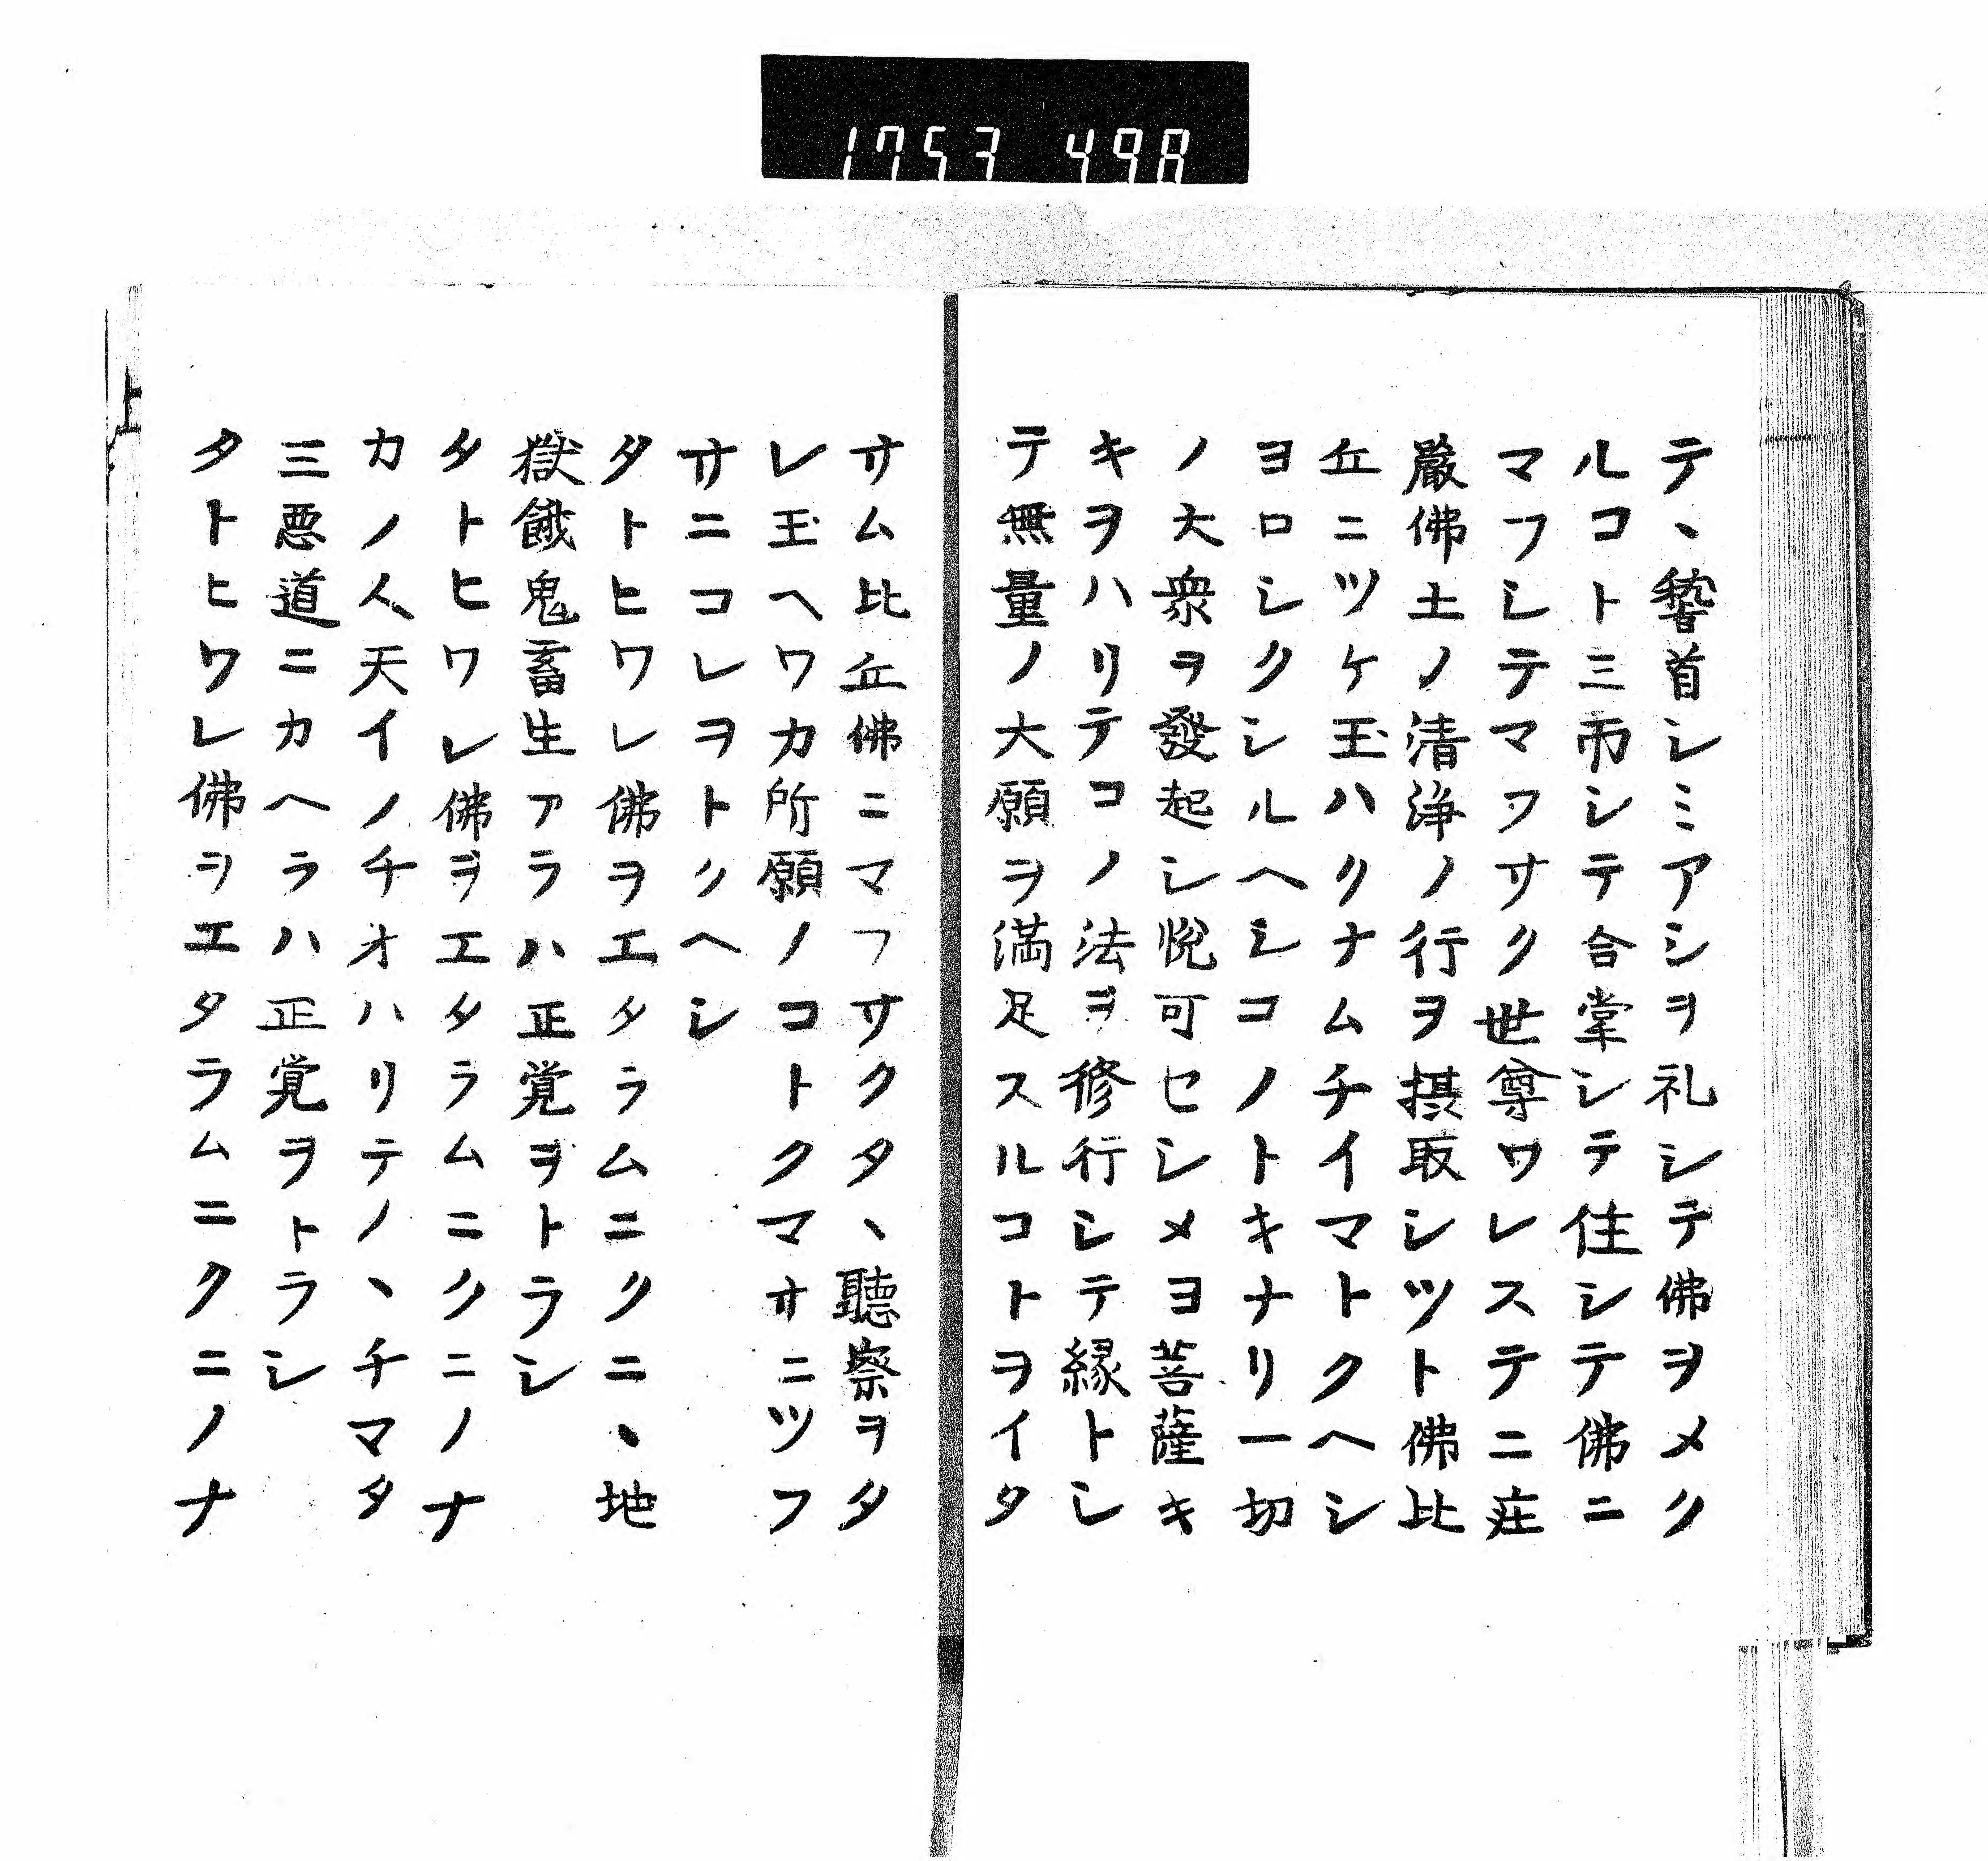 1753 498
テヽ𥡴首シミアシヲ礼シテ佛ヲメク
ルコト三帀シテ合掌シテ住シテ佛ニ
マフシテマフサク世尊ワレステニ庄
嚴佛土ノ清淨ノ行ヲ摂取シツト佛比
丘ニツケ玉ハクナムチイマトクヘシ
ヨロシクシルヘシコノトキナリ一切
ノ大衆ヲ發起シ悦可セシメヨ菩薩キ
キヲハリテコノ法ヲ修行シテ縁トシ
テ無量ノ大願ヲ満足スルコトヲイタ
サム比丘佛ニマフサクタヽ聽察ヲタ
レ玉ヘワカ所願ノコトクマサニツフ
サニコレヲトクヘシ
タトヒワレ佛ヲエタラムニクニヽ地
獄餓鬼畜生アラハ正覚ヲトラシ
タトヒワレ佛ヲエタラムニクニノナ
カノ人天イノチオハリテノヽチマタ
三悪道ニカヘラハ正覚ヲトラシ
タトヒワレ佛ヲエタラムニクニノナ